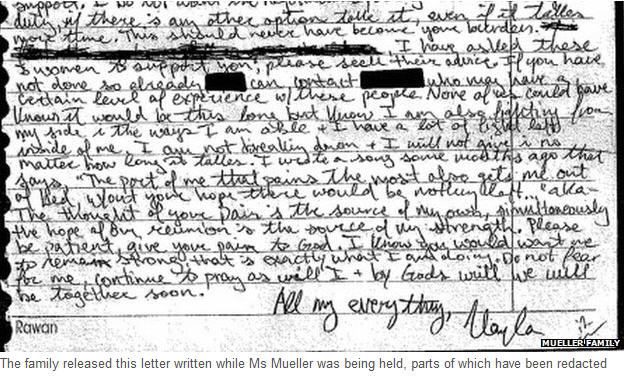 support. I do not want the
duty if there is any other option take it, even if it takes
more time. This should never have become your burden.
I have asked these
women to support you, please seek their advice. If you have
not done so already can contact who may have a
certain level of experience w/ these people. None of us could have
known it would be this long but know I am also fighting from
my side in the ways I am able + I have a lot of fight left
inside of me. I am not breaking down + I will not give in no
matter how long it takes. I wrote a song some months ago that
says, "The part of me that pains the most also gets me out
of bed, w/out your hope there would be nothing left..." aka-
The thought of your pain is the source of my own, simultaneously
the hope of our reunion is the source of my strength. Please
be patient, give your pain to God. I know you would want me
to remain strong that is exactly what I am doing. Do not fear
for me, continue to pray as will I + by God's will we will
be together soon.
All my everything,
Kayla
Rawan
MUELLER FAMILY
The family released this letter written while Ms Mueller was being held, parts of which have been redacted